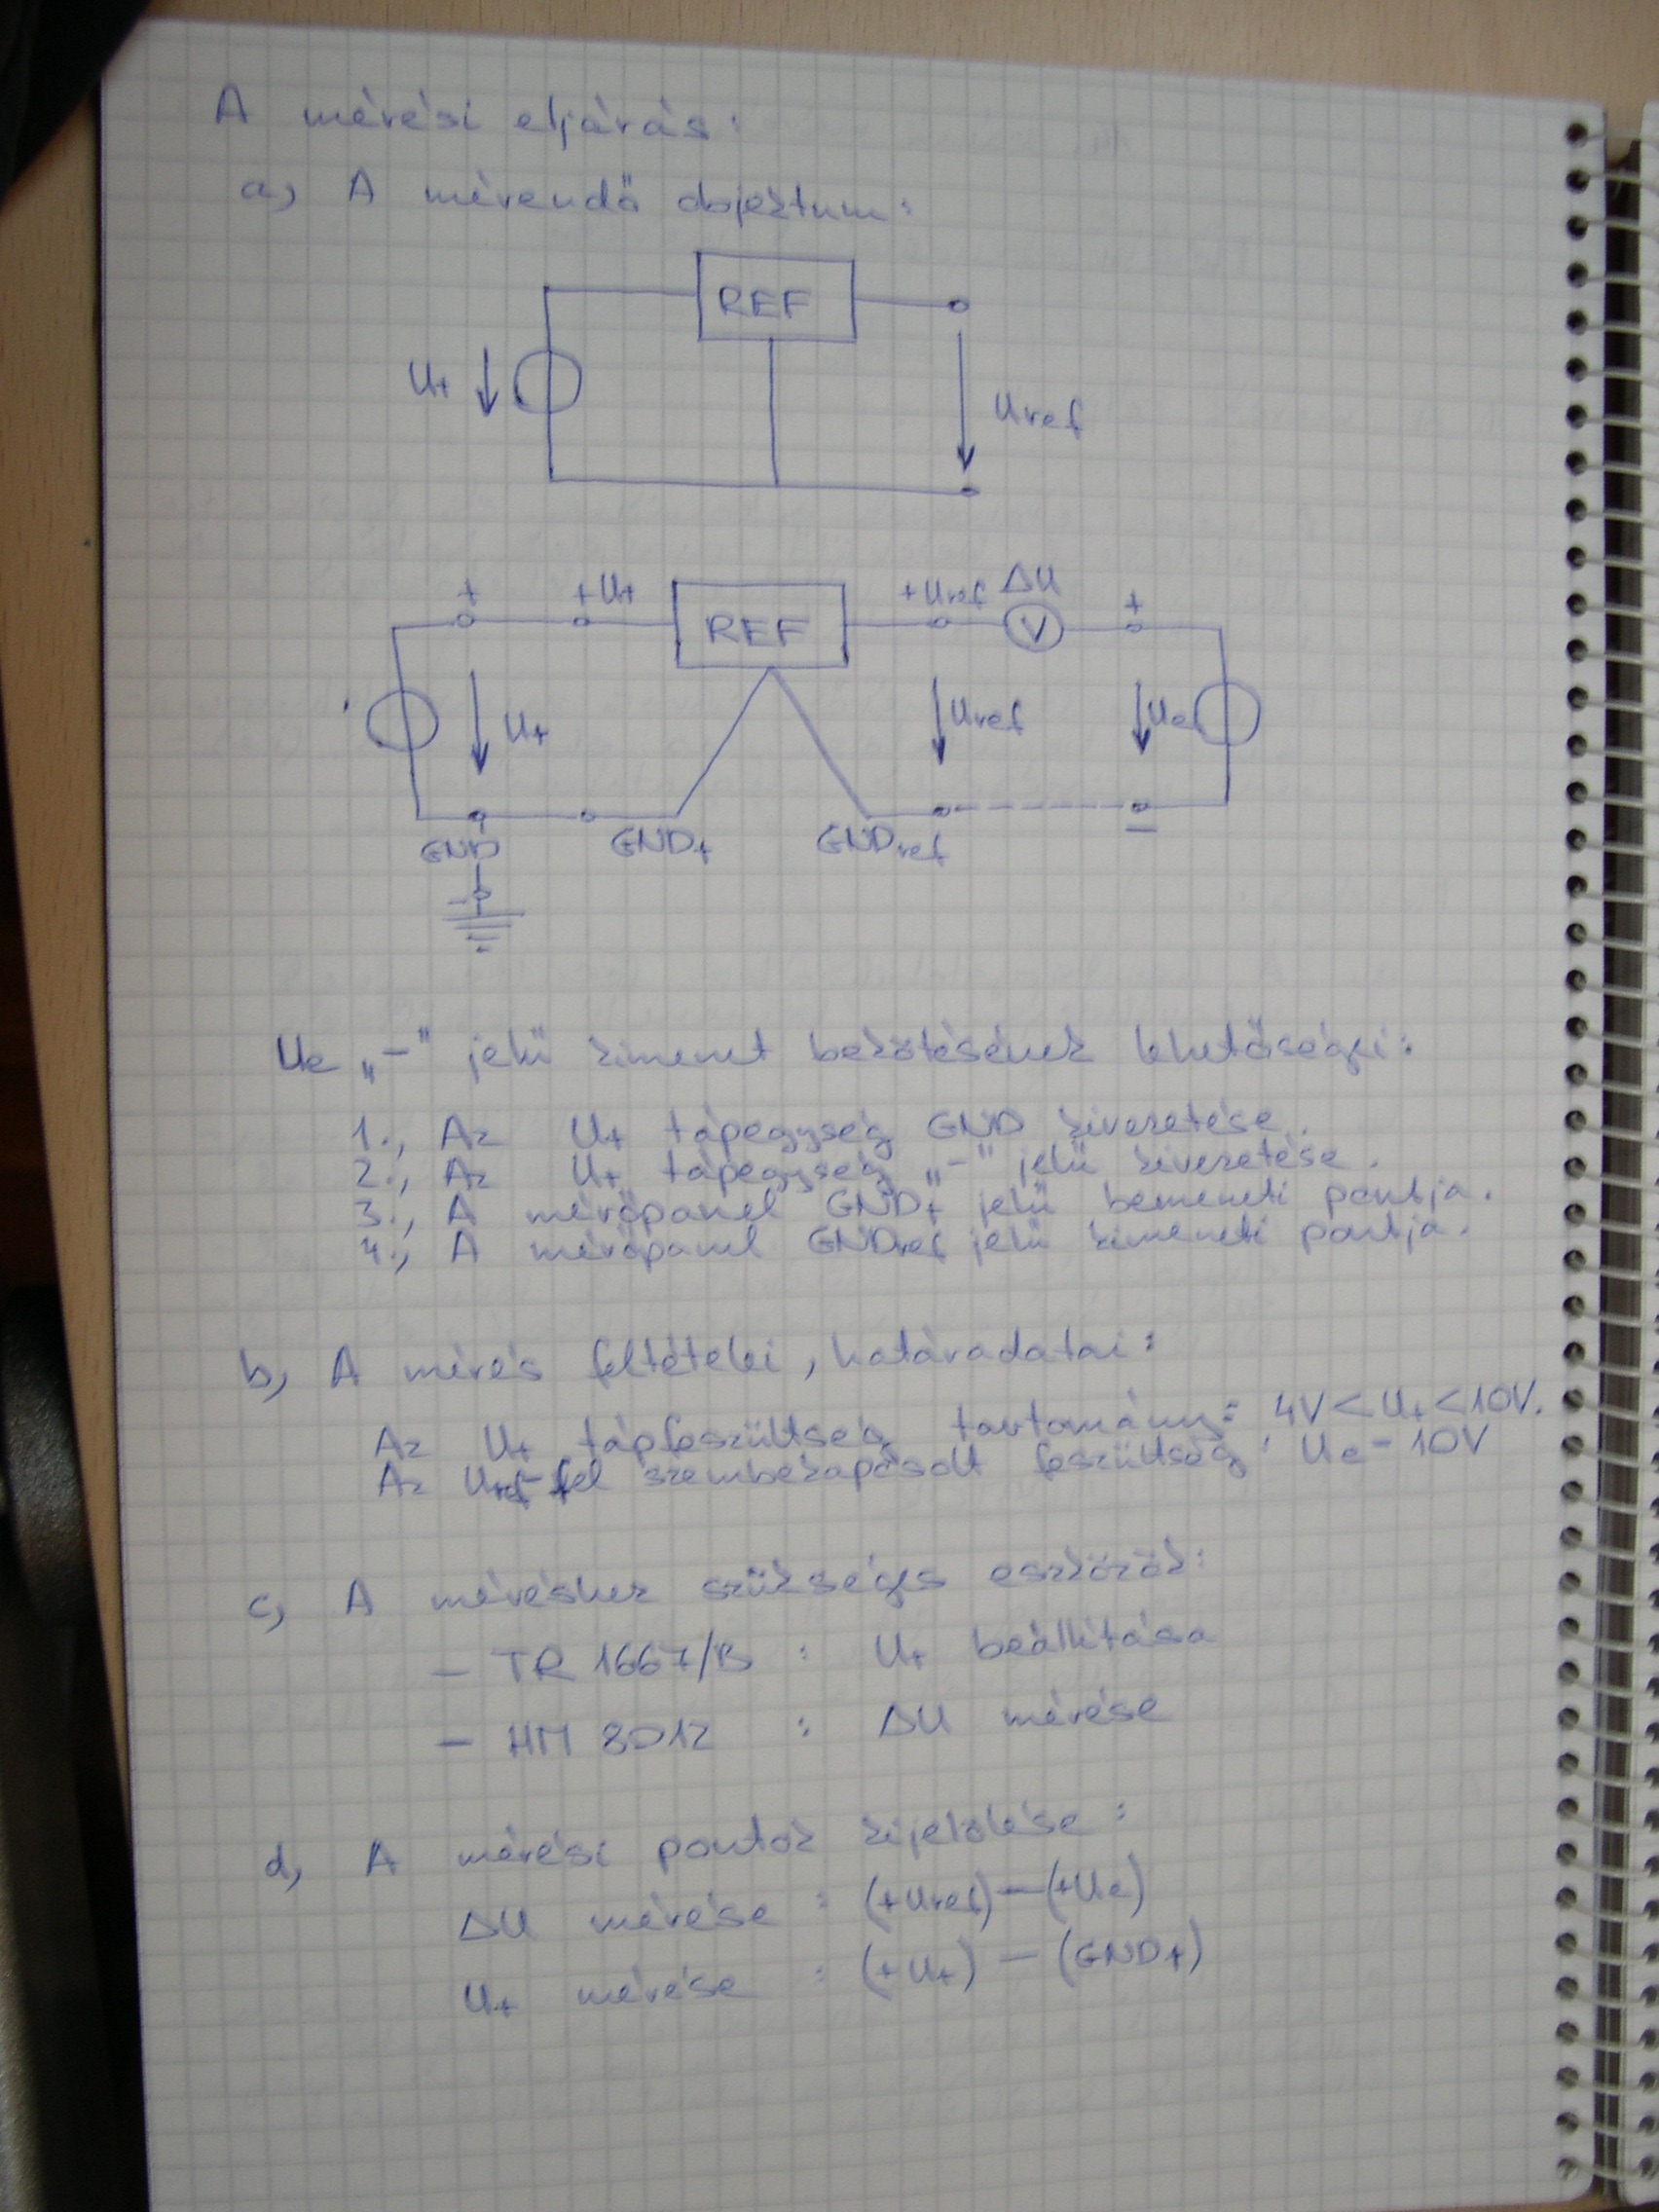 A mérési eljárás:
a, A mérendő objektum:
REF
U+
Uref
+ +U+ REF +Uref ΔU V +
U+ Uref Ue
GND GND+ GNDref −
Ue „−" jelű kimenet bekötésének lehetőségei:
1., Az U+ tápegység GND kivezetése.
2., Az U+ tápegység „−" jelű kivezetése.
3., A mérőpanel GND+ jelű bemeneti pontja.
4., A mérőpanel GNDref jelű kimeneti pontja.
b, A mérés feltételei, határadatai:
Az U+ tápfeszültség tartomány: 4V < U+ < 10V.
Az Uref-fel szembekapcsolt feszültség: Ue - 10V
c, A méréshez szükséges eszközök:
− TR 1667/B : U+ beállítása
− HM 8012 : ΔU mérése
d, A mérési pontok kijelölése:
ΔU mérése : (+Uref) − (+Ue)
U+ mérése : (+U+) − (GND+)